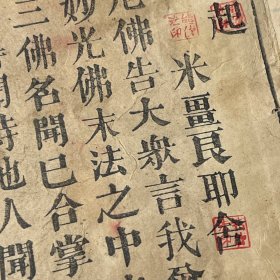 起
米畺良耶舍
厄佛告大衆言我
妙光佛末法之中
三佛名聞已合掌
時他人聞